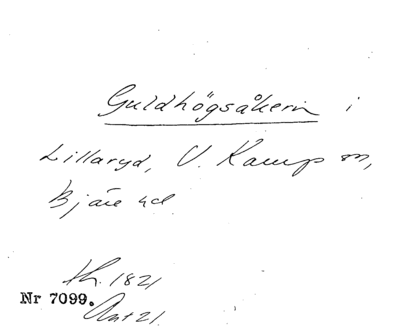 Guldhögsåkern i
Lillaryd, V. Karup sn,
Bjäre hd.
th. 1821
Nr 7099.
Ant 21.